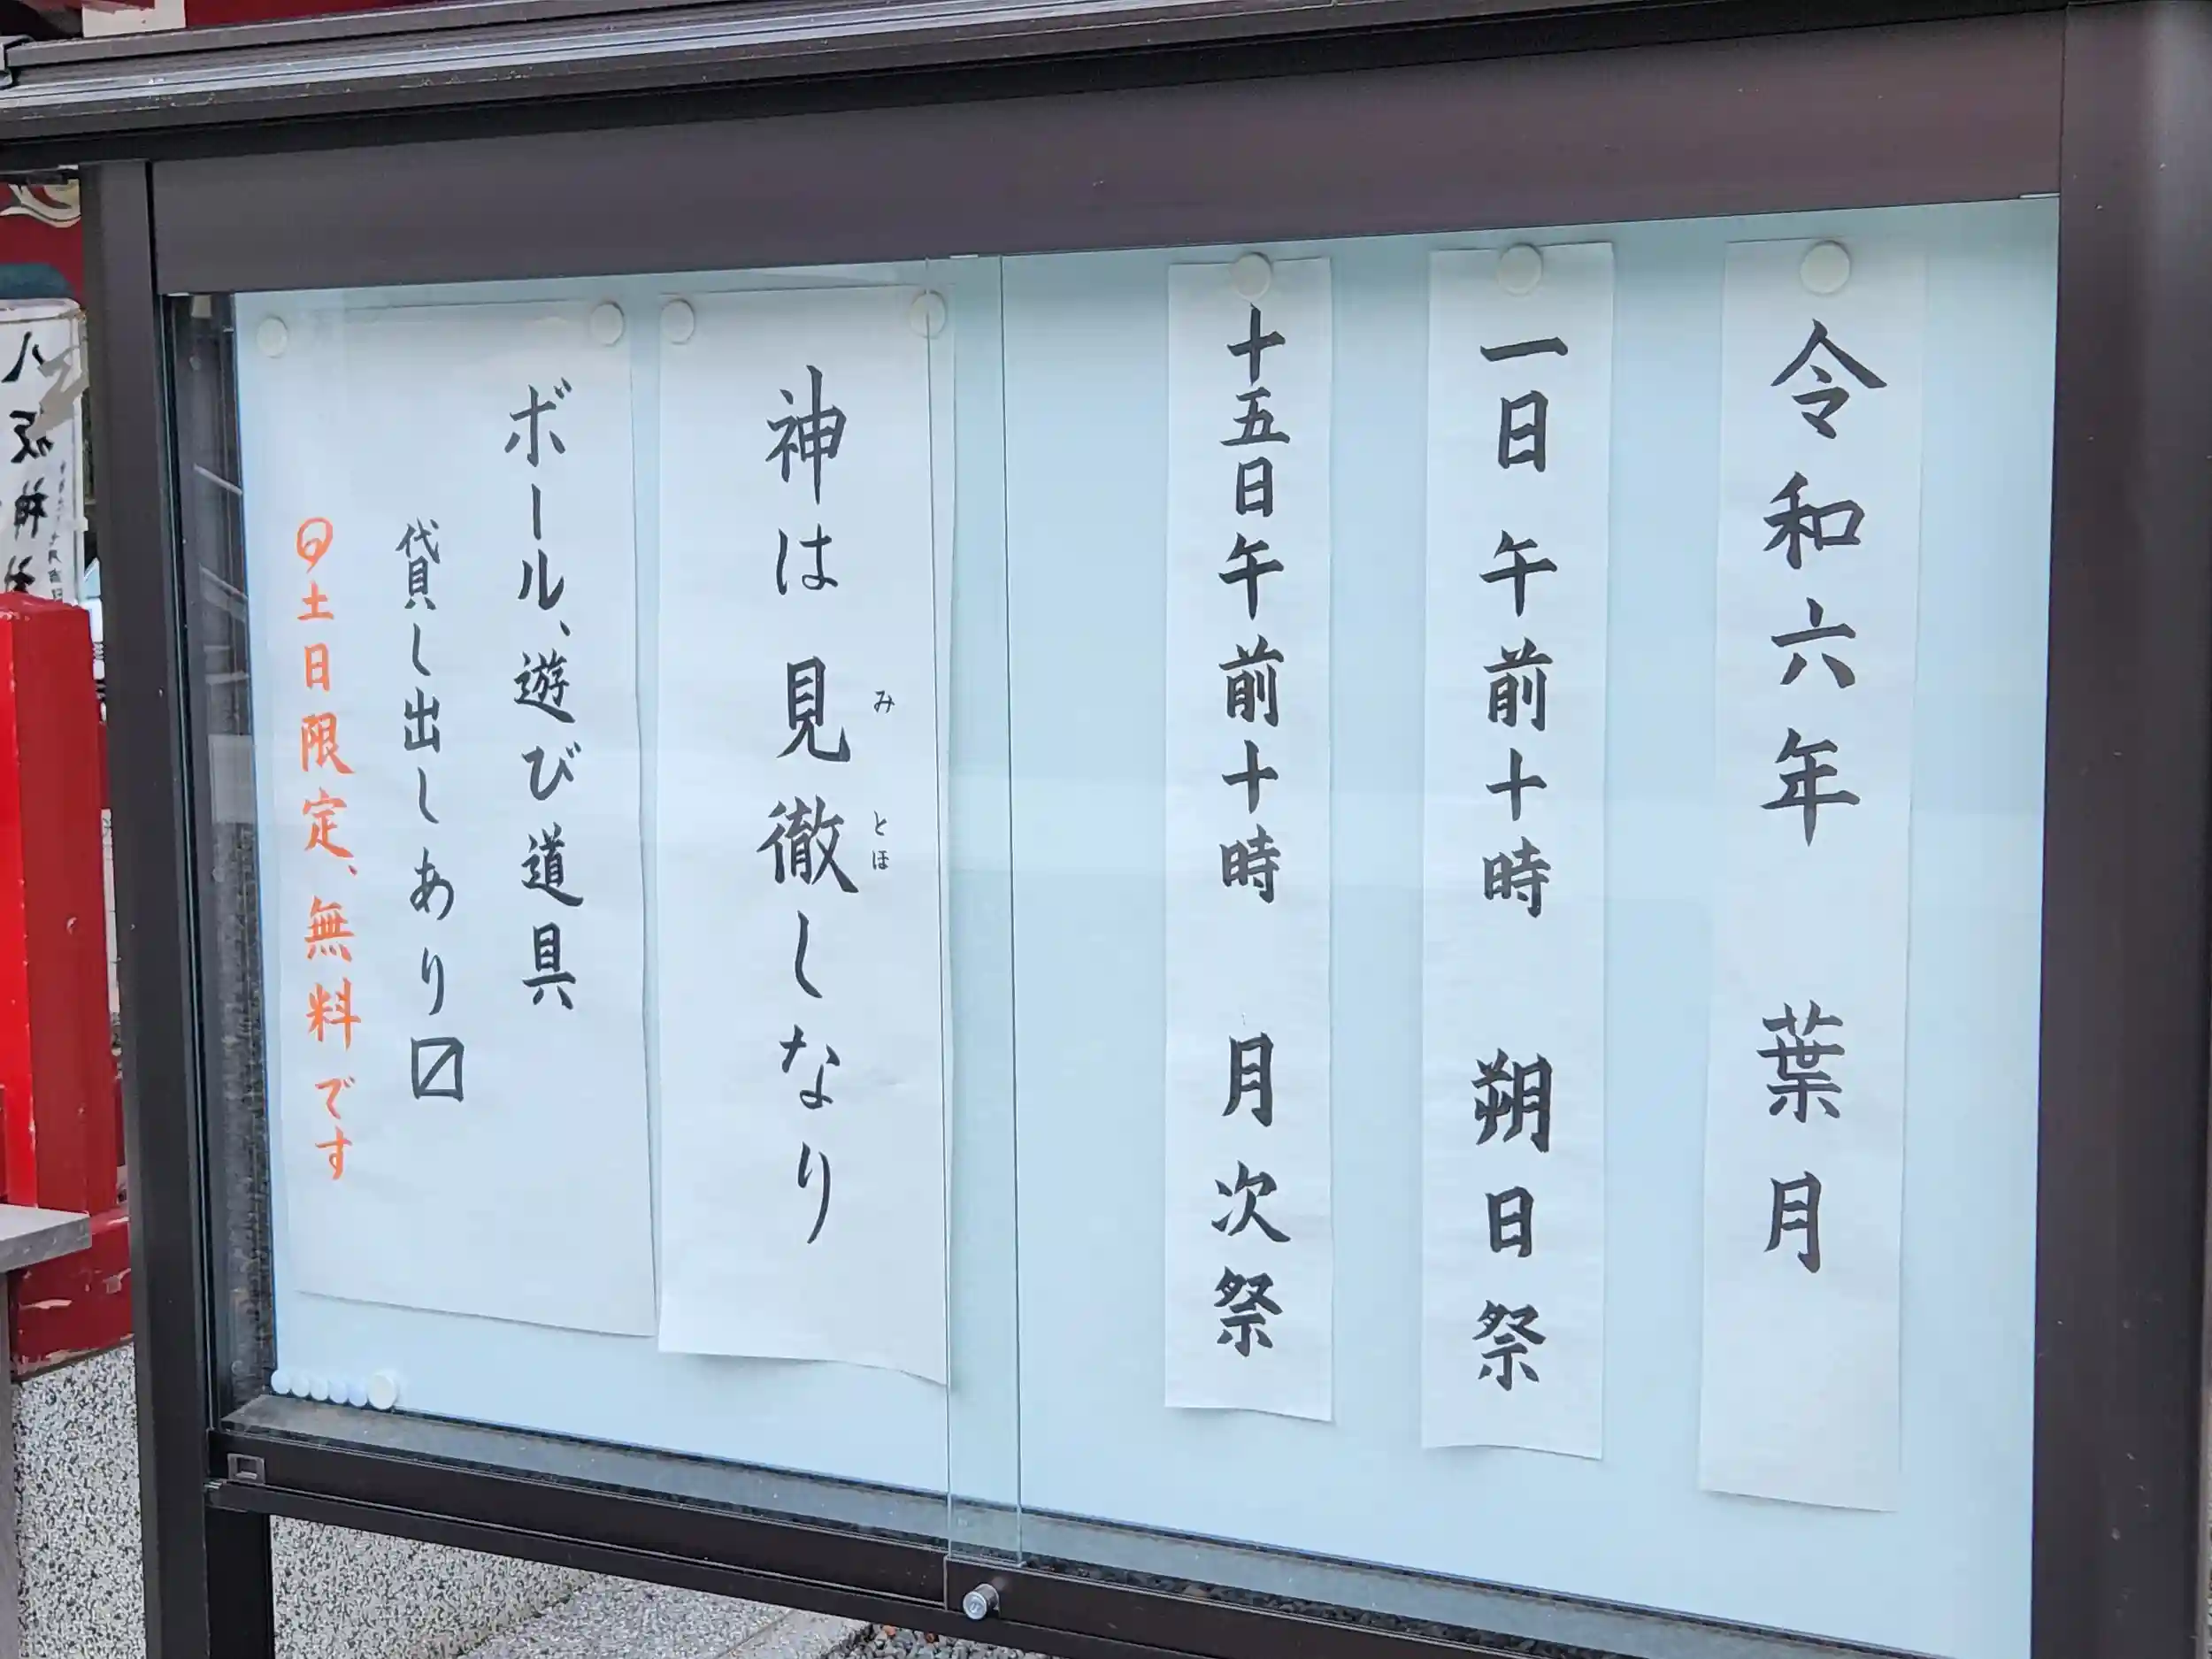 令和六年　葉月
一日　午前十時　朔日祭
十五日午前十時　月次祭
神は見徹しなり
み
とほ
ボール、遊び道具
貸し出しあり〼
土日限定、無料です